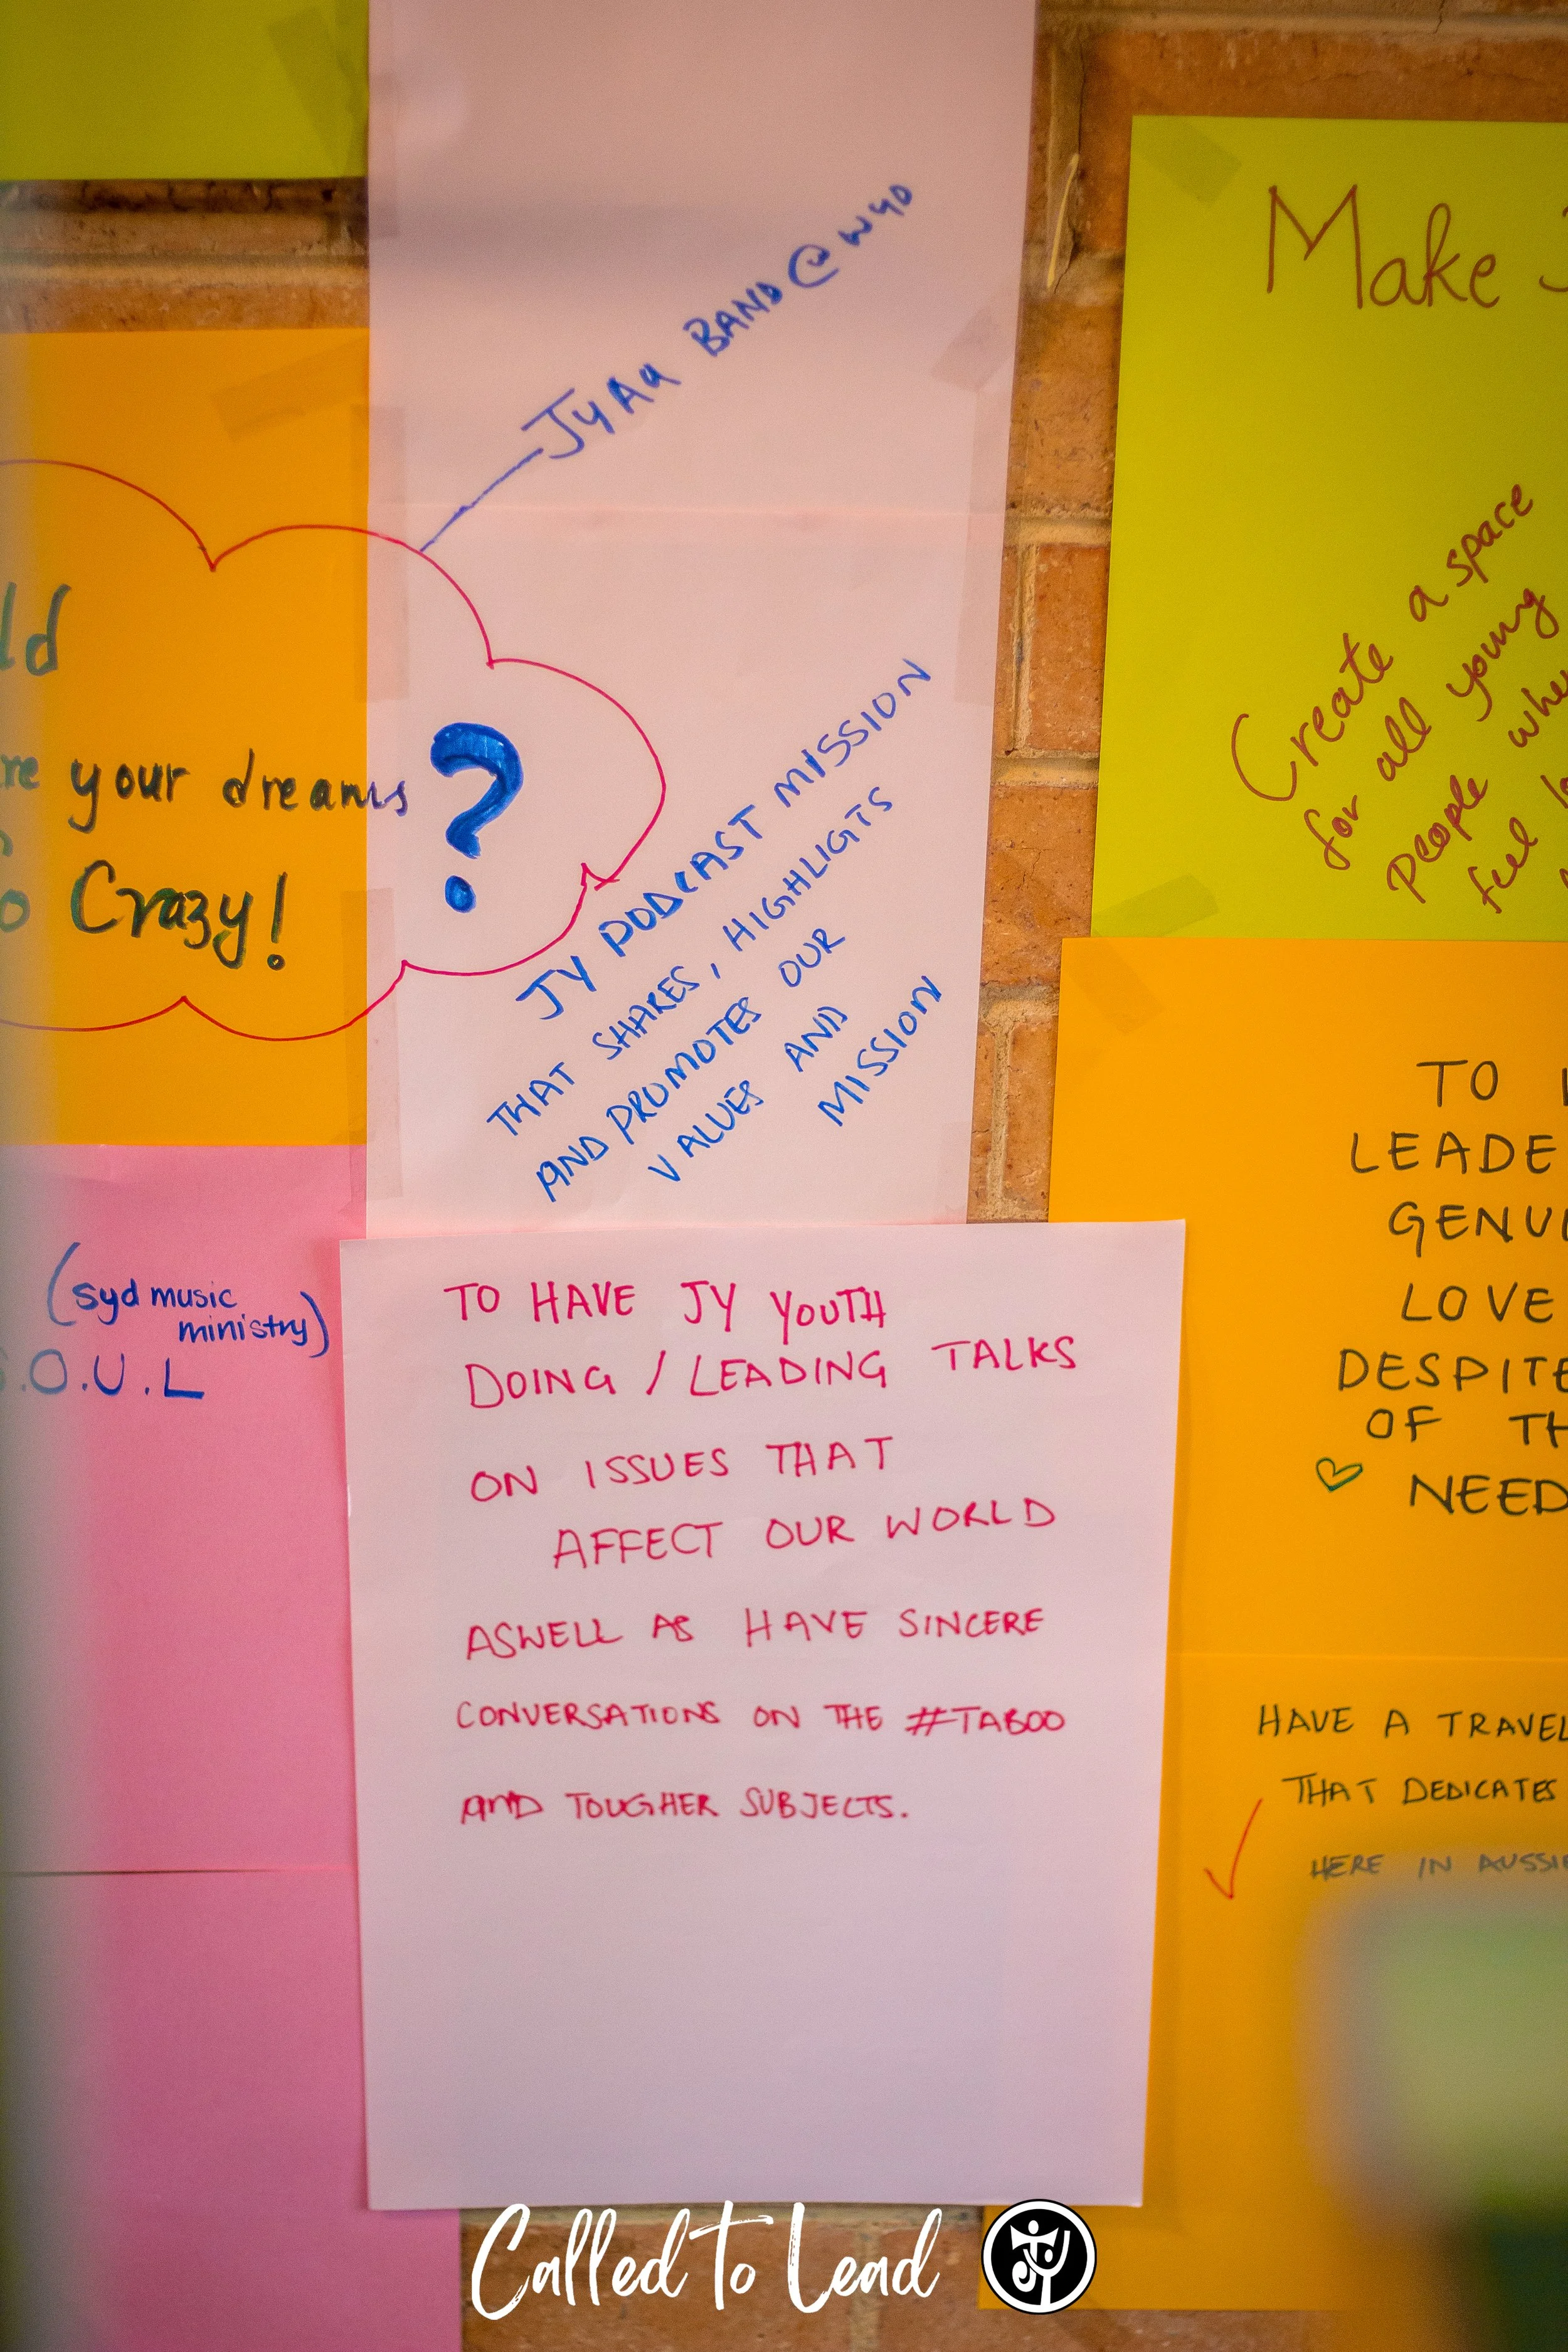 JYAu BAND @ WYD
ld
re your dreams
?
o Crazy!
JY PODCAST MISSION
THAT SHARES, HIGHLIGTS
AND PROMOTES OUR
VALUES AND
MISSION
(syd music
ministry)
S.O.U.L
TO HAVE JY YOUTH
DOING / LEADING TALKS
ON ISSUES THAT
AFFECT OUR WORLD
ASWELL AS HAVE SINCERE
CONVERSATIONS ON THE #TABOO
AND TOUGHER SUBJECTS.
Make
Create a space
for all young
people whe
feel
TO
LEADE
GENUI
LOVE
DESPITE
OF TH
NEED
HAVE A TRAVEL
THAT DEDICATES
HERE IN AUSSIE
Called to Lead
JY